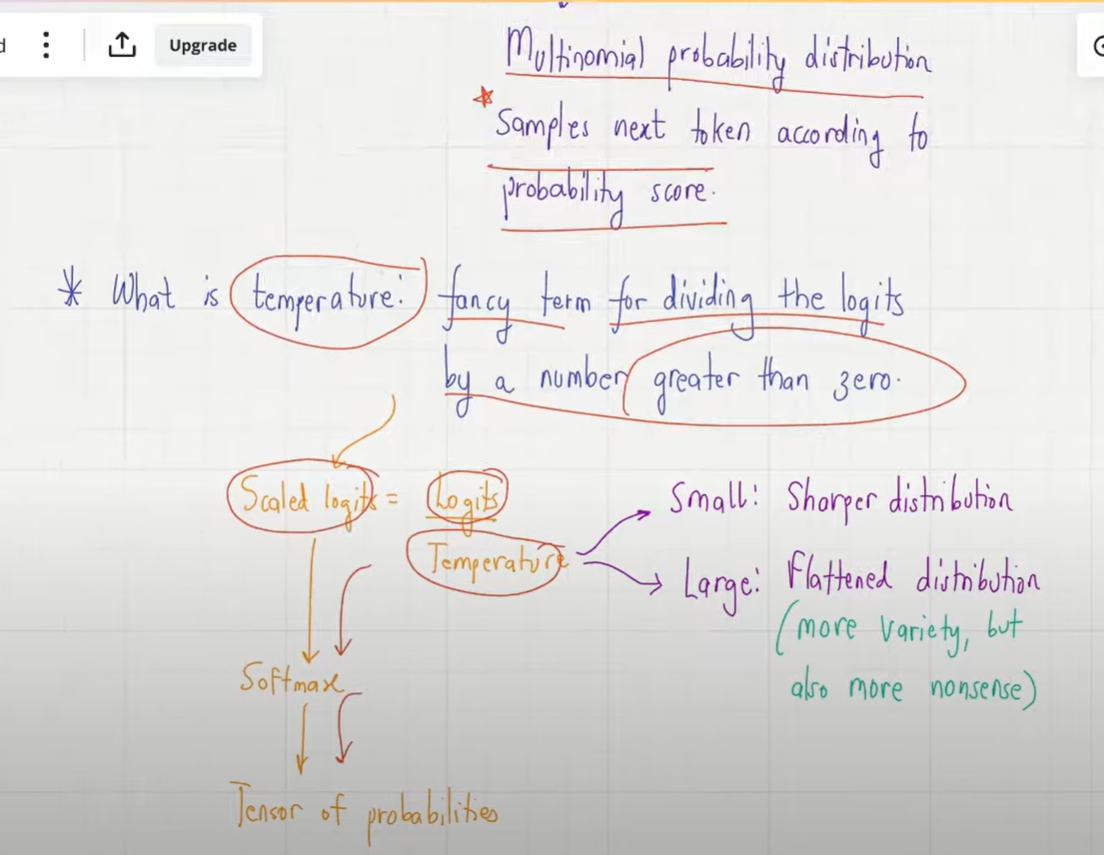 d
Upgrade
Multinomial probability distribution
* Samples next token according to
probability score.
* What is temperature: fancy term for dividing the logits
by a number greater than zero.
Scaled logits = Logits
Temperature
Small: Sharper distribution
Large: Flattened distribution
(more variety, but
also more nonsense)
Softmax
Tensor of probabilities